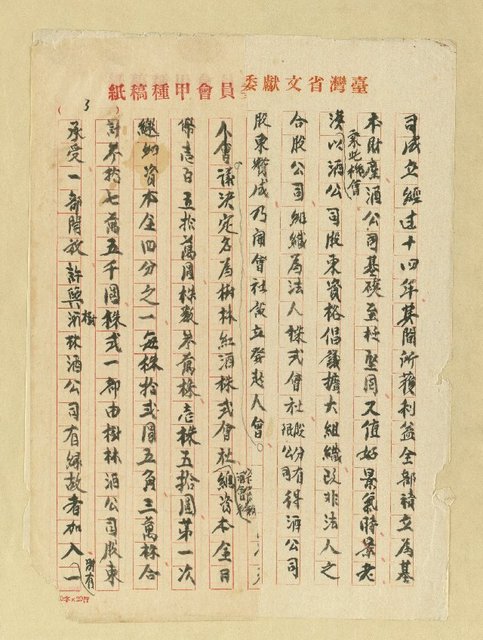 臺灣省文獻委員會甲種稿紙
3
司成立經过十四年其間所獲利益全部積立為基
本財產酒公司基礎至極堅固又值好景氣時景老
乘此機會
淡以酒公司股東資格倡議擴大組織改非法人之
合股公司組織為法人株式會社股份有限公司得酒公司
股東贊成乃開會社設立發起人會。
人會議決定名為樹林紅酒株式會社總資本金日
幣壱百五拾萬円株數叁萬株壱株五拾圓第一次
繳納資本金四分之一每株拾弍圓五角三萬株合
計叁拾七萬五千圓株式一部由樹林酒公司股東
承受一部開放許與樹林酒公司有緣故者加入一
別有